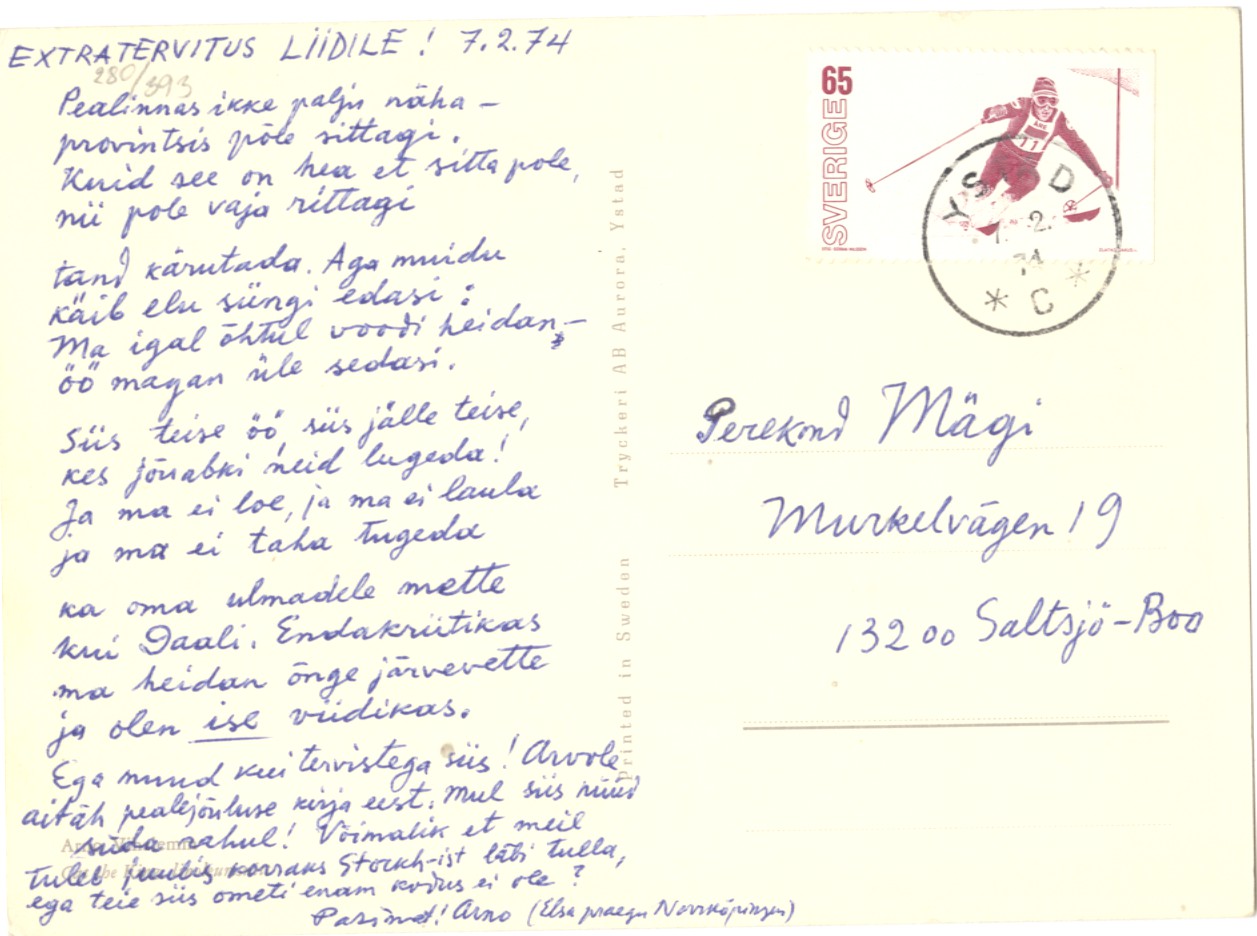 EXTRATERVITUS LIIDILE! 7.2.74
280/393
Pealinnas ikke palju näha –
provintsis põle sittagi.
Kuid see on hea et sitta pole,
nii pole vaja rittagi
tand kärutada. Aga muidu
käib elu süngi edasi:
Ma igal õhtul voodi heidan –
öö magan üle sedasi.
Siis teise öö, siis jälle teise,
kes jõuabki neid lugeda!
Ja ma ei loe, ja ma ei laula
ja ma ei taha tugeda
ka oma ulmadele mette
kui Daali. Endakriitikas
ma heidan õnge järvevette
ja olen ise viidikas.
Ega muud kui tervistega siis! Arvole
aitäh pealejõuluse kirja eest. Mul siis nüüd
süda rahul! Võimalik et meil
tuleb juulis korraks Stockh-ist läbi tulla,
ega teie siis ometi enam kodus ei ole?
Parimat! Arno (Elsa praegu Norrköpingen)
Printed in Sweden Tryckeri AB Aurora, Ystad
65
SVERIGE
ÅRE
11
YSTAD
7. 2.
74
* C *
Perekond Mägi
Murkelvägen 19
132 00 Saltsjö-Boo